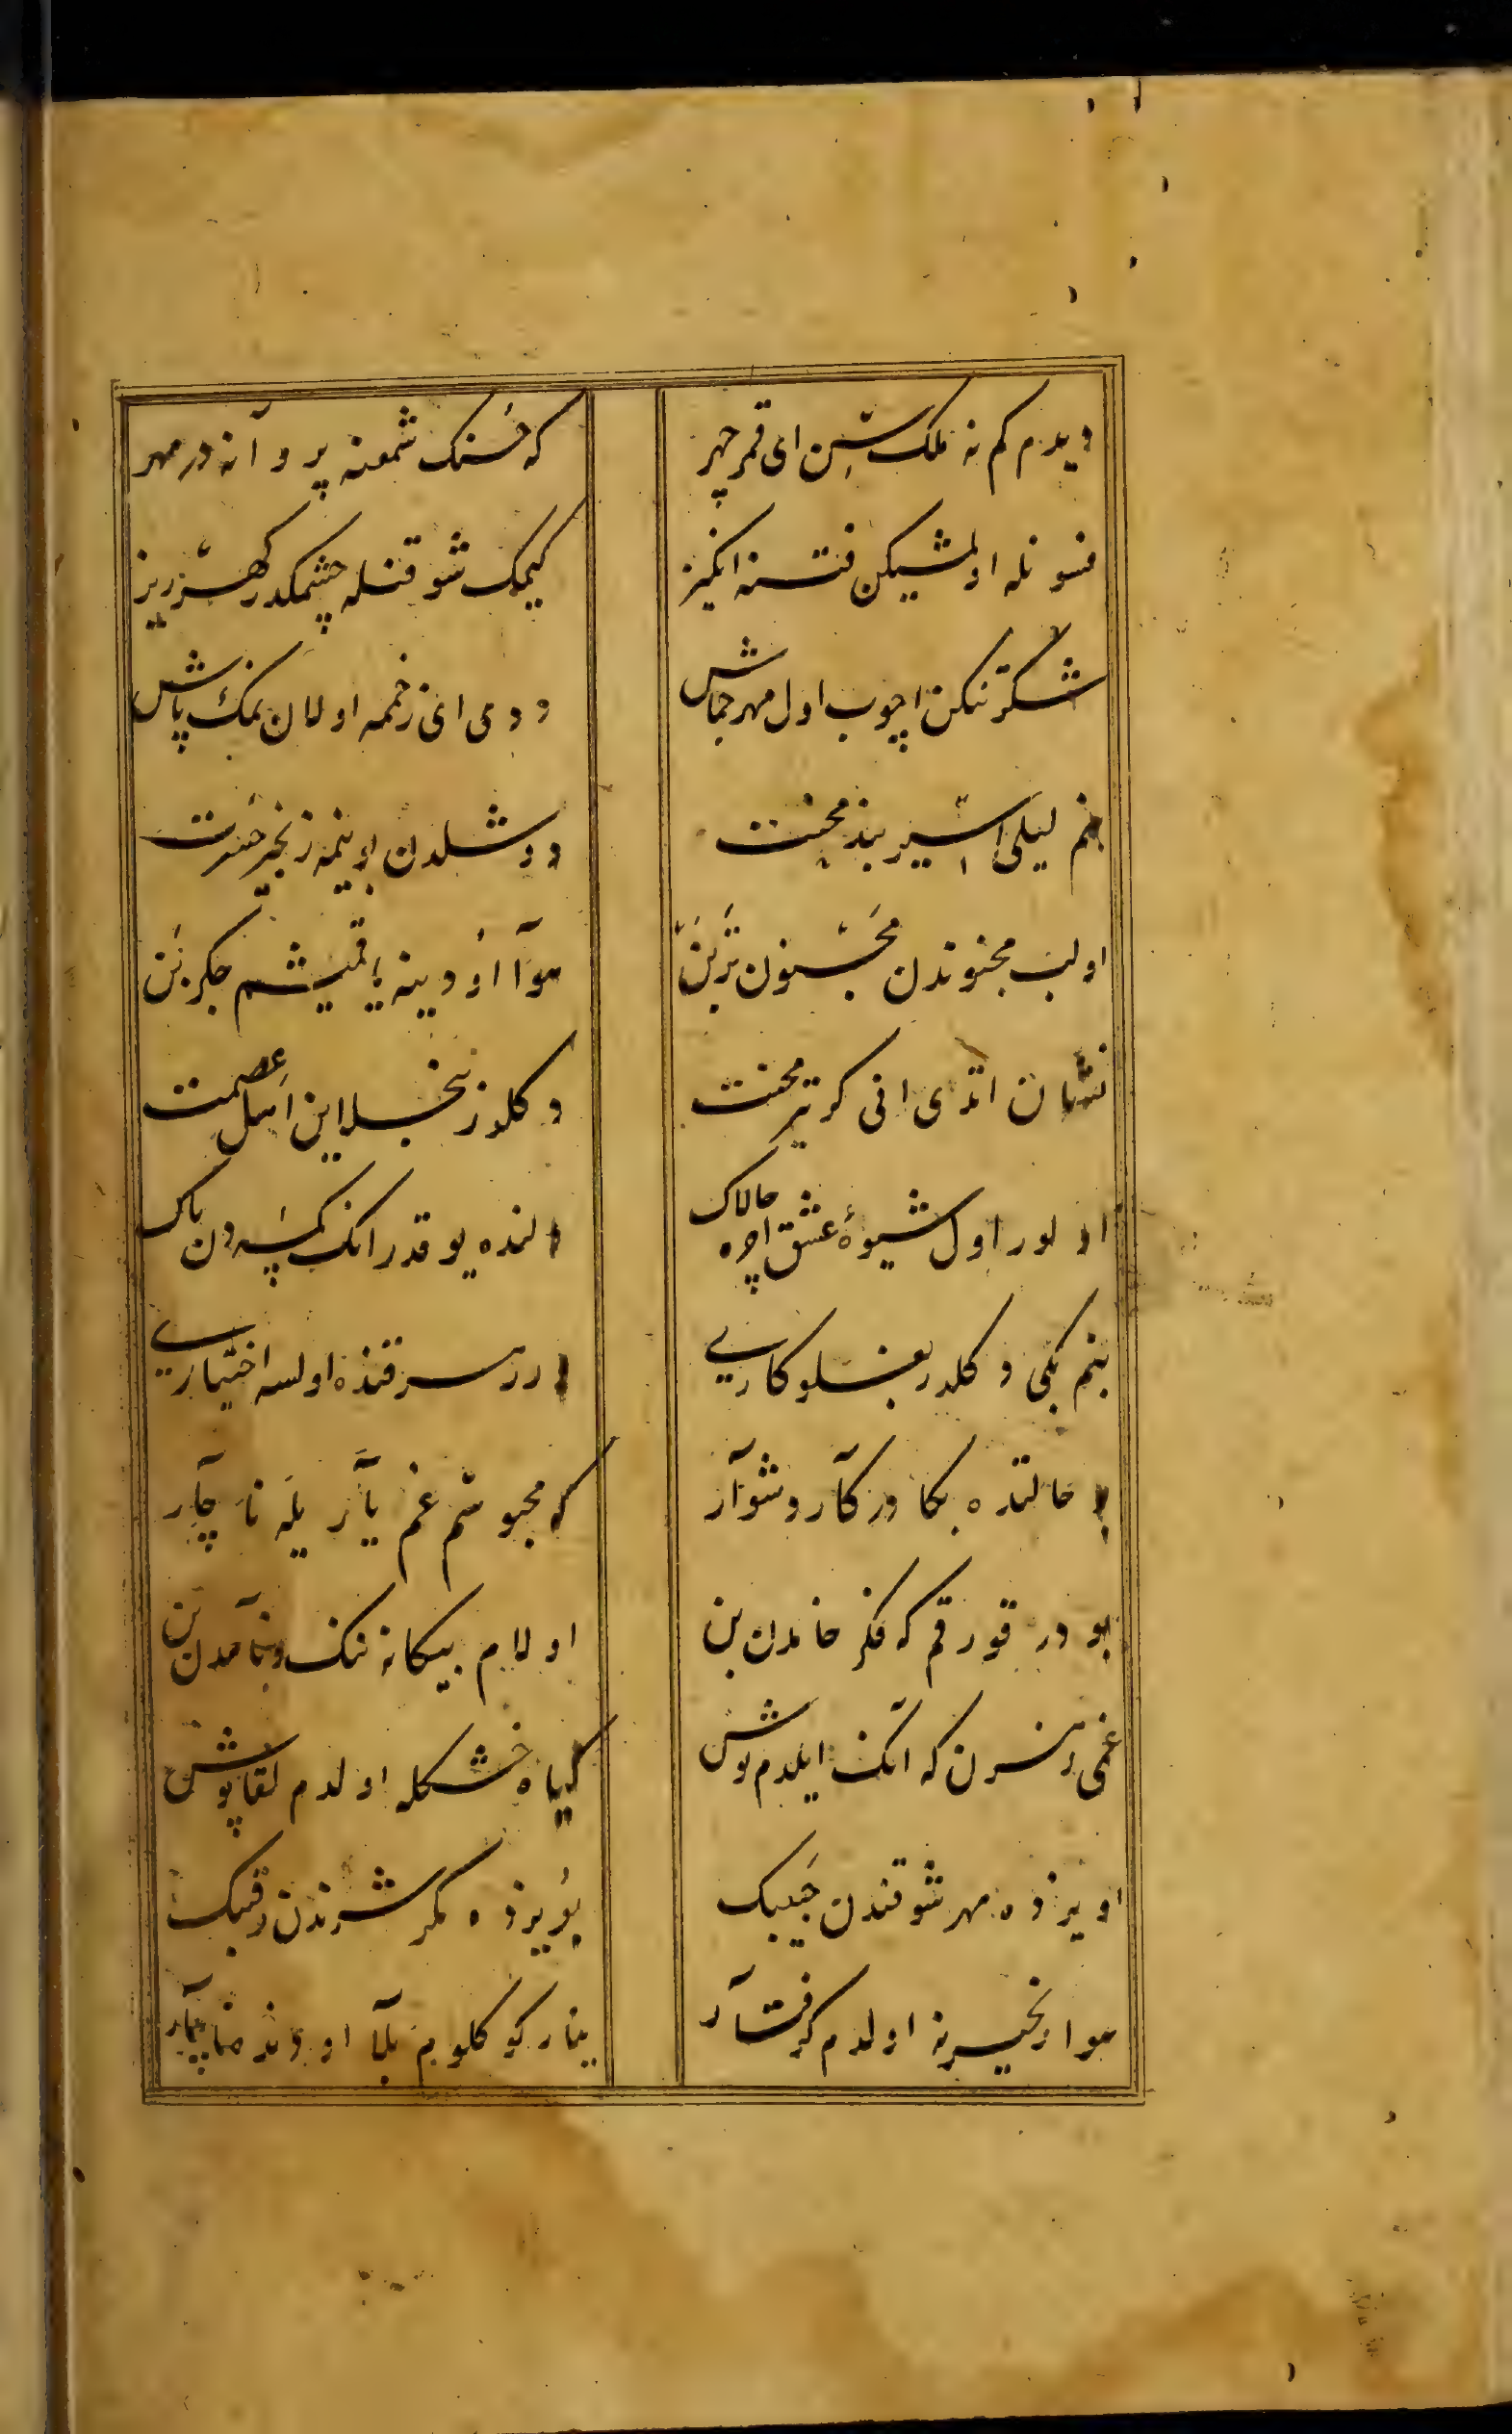 دیدم کم نه ملک سن ای قمر چهر
که حسنک شمعنه پروآنه در مهر
فسونله اولمشیکن فتنه انکیز
کیمک شوقنله چشمکدر کهرریز
شکر تنکن اچوب اول مهر جماش
ددی ای زخممه اولان نمک پاش
بنم لیلی اسیر بند محنت
دوشلدن بوینمه زنجیر حسرت
اولب مجنوندن مجنون تربن
هوآ اودینه یاقمیشم جکر بن
نشان اتدی انی کر تیر محنت
دکلدر بنجلاین اهل عصمت
اولور اول شیوهٔ عشق اچره چالاک
النده یوقدر انک کمسه دن باک
بنم بکی دکلدر بغلو کاری
ارر سر قنده اولسه اختیاری
بو حالتده بکا در کآر دشوآر
که محبوسم غم یآر یله نا چآر
بو در قورقم که فکر خامدن بن
اولام بیکانه ننک ونآمدن بن
غمی رسرن که انک ایلدم نوش
کیاه خشکله اولدم لقا پوش
اویرزه مهر شوقندن حبیبک
یوریزه مکر شرندن رقیبک
هوا زنجیرنه اولدم کرفتآر
ینار کوکلوم بلآ اودنده ناچآر